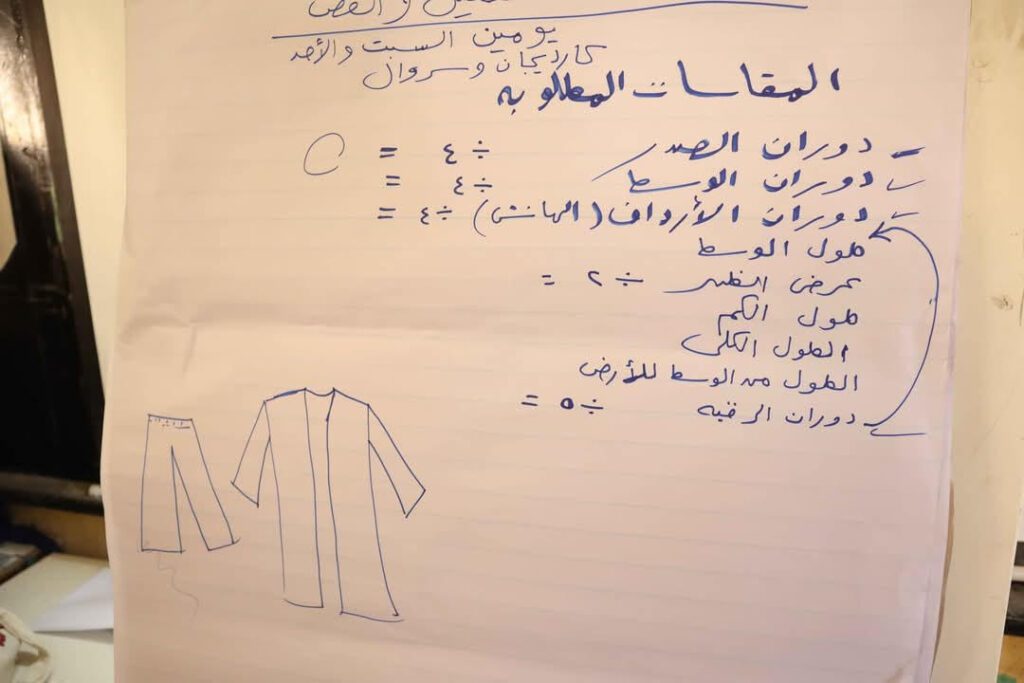 والقص
يومين السبت والأحد
كارديجان وسروال
المقاسات المطلوبه
- دوران الصدر ÷ ٤ =
- دوران الوسط ÷ ٤ =
- دوران الأرداف (الهانش) ÷ ٤ =
طول الوسط
عرض الظهر ÷ ٢ =
طول الكم
الطول الكلى
الطول من الوسط للأرض
دوران الرقبه ÷ ٥ =